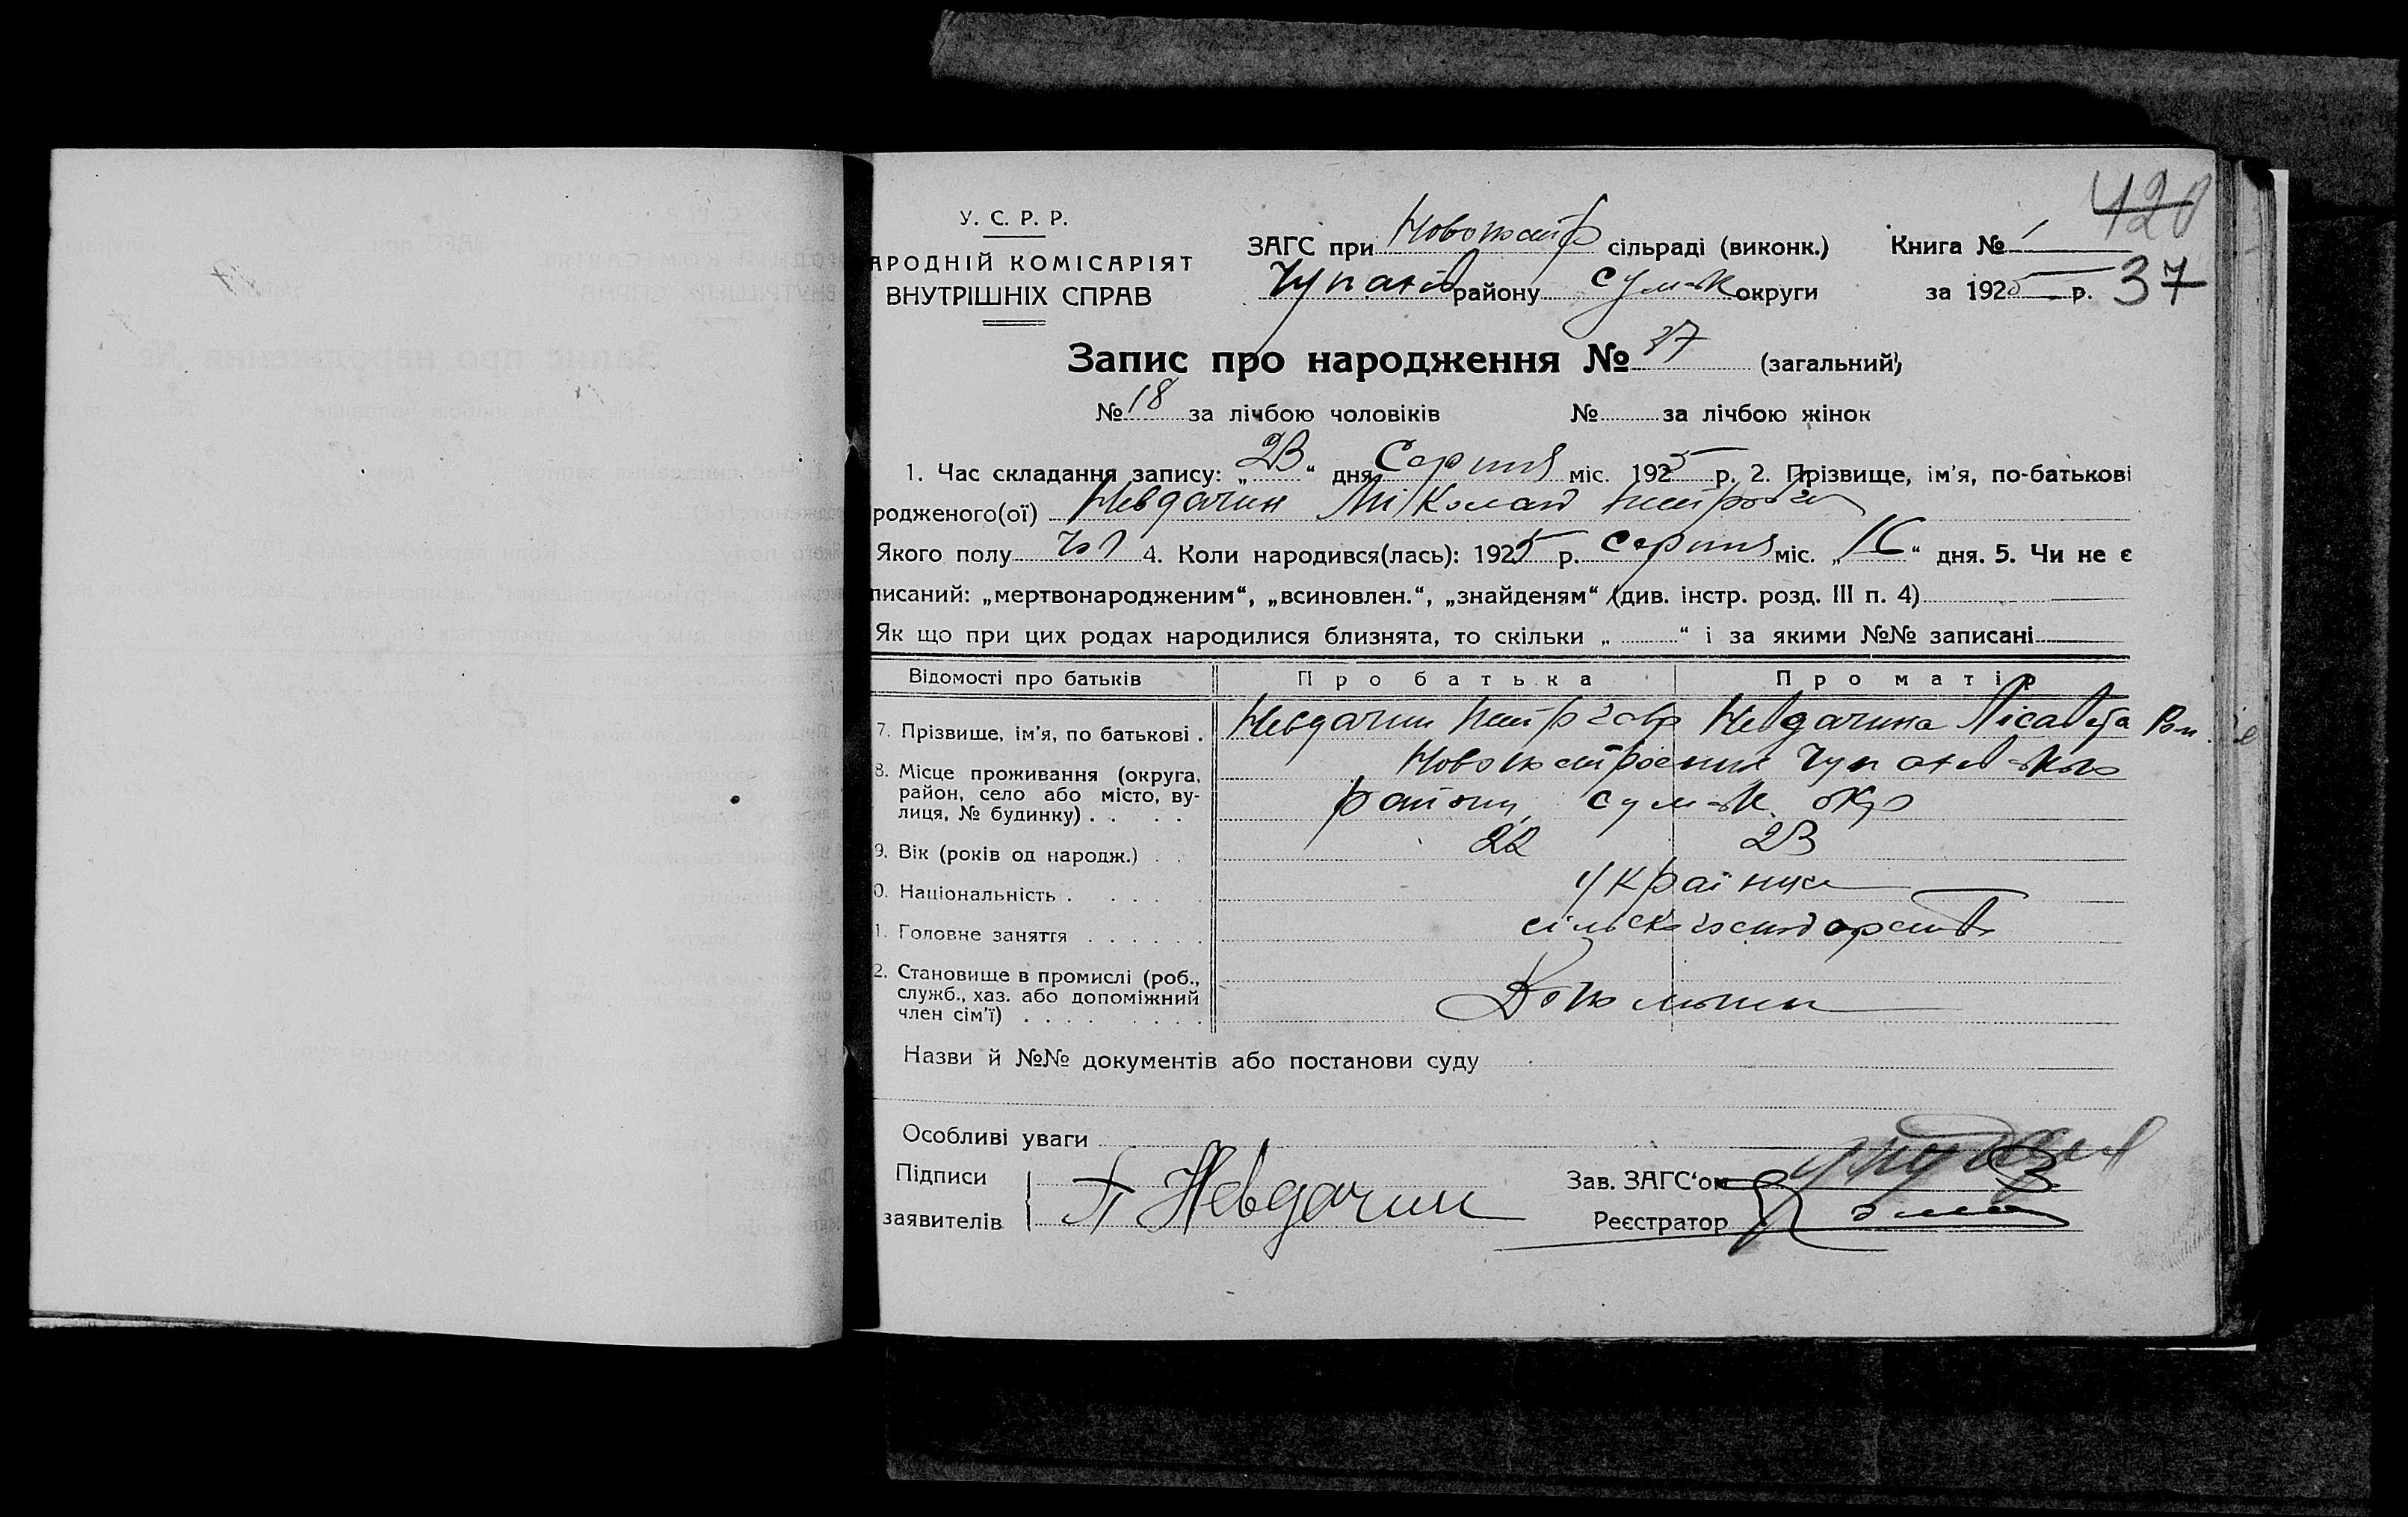 420
У. С. Р. Р.
АРОДНІЙ КОМІСАРІЯТ
ВНУТРІШНІХ СПРАВ
ЗАГС при сільраді (виконк.) Книга № 1
району Сумськ округи за 1925 р. 37
Запис про народження № 37 (загальний)
№ 18 за лічбою чоловіків № за лічбою жінок
1. Час складання запису: „23“ дня Серпня міс. 1925 р. 2. Прізвище, ім'я, по-батькові
родженого(ої) Невдачин Міколай Петров
Якого полу чол 4. Коли народився(лась): 1925 р. Серпня міс. „16“ дня. 5. Чи не є
писаний: „мертвонародженим“, „всиновлен.“, „знайденям“ (див. інстр. розд. III п. 4)
Як що при цих родах народилися близнята, то скільки „ “ і за якими №№ записані
Відомості про батьків Про батька Про матір
7. Прізвище, ім'я, по батькові . Невдачин Петр Невдачина Лісавета Ром
8. Місце проживання (округа,
район, село або місто, ву-
лиця, № будинку) . . . . району Сумськ окр
9. Вік (років од народж.) . . 22 23
0. Національність . . . . . Українці
1. Головне заняття . . . . . . сільське господарство
2. Становище в промислі (роб.,
служб., хаз. або допоміжний
член сім'ї) . . . . . . . . .
Назви й №№ документів або постанови суду
Особливі уваги
Підписи
заявителів П Невдачин
Зав. ЗАГС'ом
Реєстратор